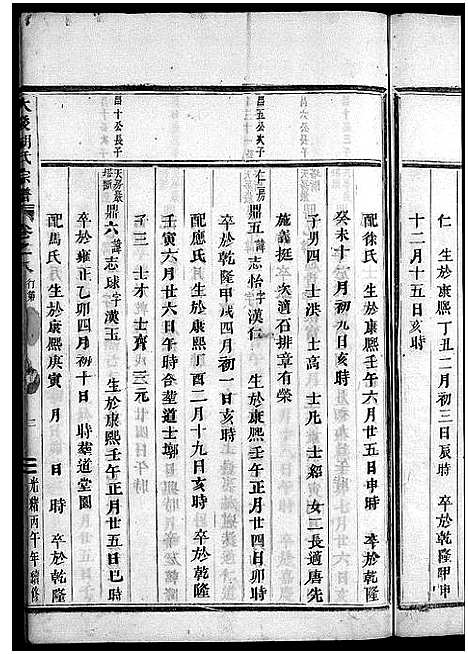 仁 生於康熙丁丑二月初三日辰時 卒於乾隆甲申
十二月十五日亥時
配徐氏 生於康熙壬午六月廿五日申時 卒於乾隆
癸未十一月初九日亥時
子男四 士洪 士高 士凡 士紹 女二長適唐先
施義挺 次適石排章有榮
昌五公次子
仁房
鼎五 諱志怡字漢仁 生於康熙壬午正月廿四日卯時
卒於乾隆甲戌四月初一日亥時
配應氏 生於康熙丁酉二月十九日亥時 卒於乾隆
壬寅六月廿六日午時 各葬道士塢
子三 士才 士齊 三元
昌十公長子
天房
塔頭
鼎六 諱志球字漢玉 生於康熙壬午正月廿五日巳時
卒於雍正乙卯四月初十日 時葬道堂園
配馬氏 生於康熙庚寅 月 日 時 卒於乾隆
胡氏宗譜 卷之八 行第 光緒丙午年續修